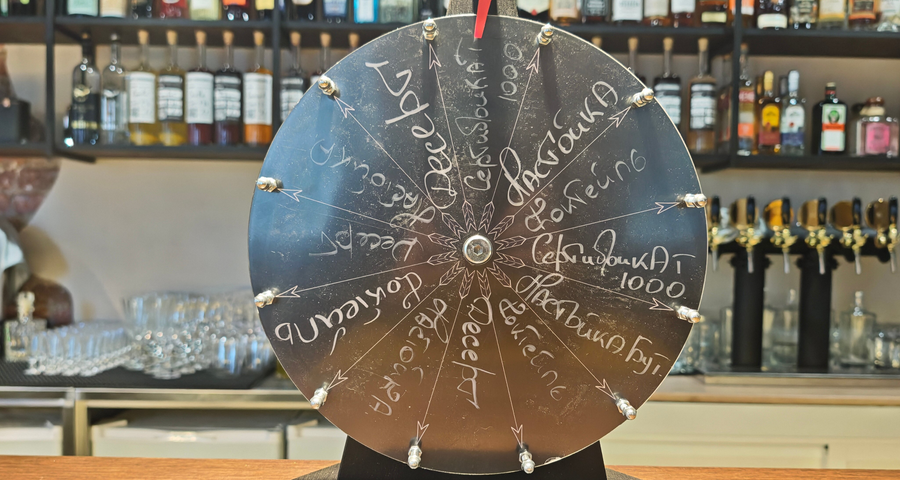 Сертификат
1000
Настойка
Коктейль
Сертификат
1000
Настойка бут.
Коктейль
Десерт
Настойка
Коктейль
Десерт
Настойка
Десерт